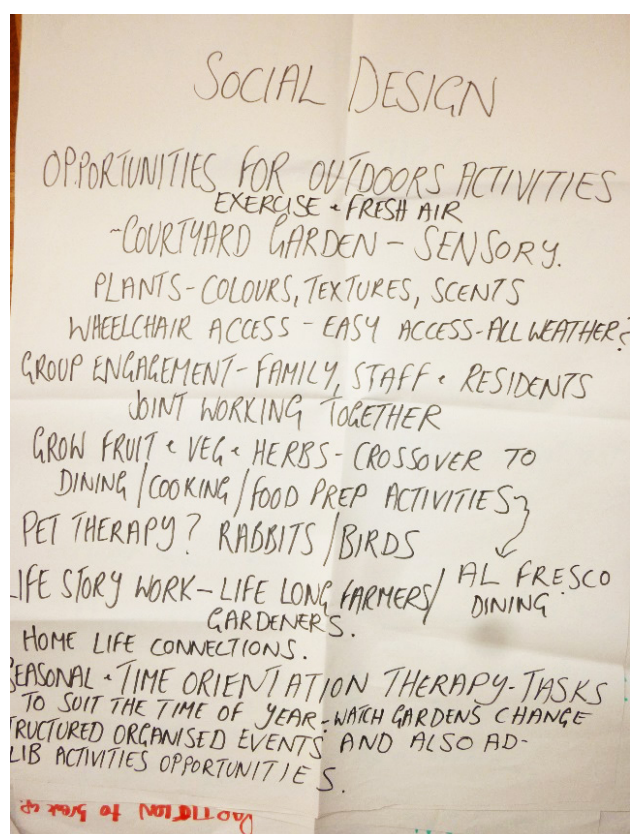 SOCIAL DESIGN
OPPORTUNITIES FOR OUTDOORS ACTIVITIES
EXERCISE + FRESH AIR
-COURTYARD GARDEN - SENSORY.
PLANTS - COLOURS, TEXTURES, SCENTS
WHEELCHAIR ACCESS - EASY ACCESS - ALL WEATHER?
GROUP ENGAGEMENT - FAMILY, STAFF + RESIDENTS
JOINT WORKING TOGETHER
GROW FRUIT + VEG + HERBS - CROSSOVER TO
DINING / COOKING / FOOD PREP ACTIVITIES
PET THERAPY? RABBITS / BIRDS
AL FRESCO
DINING
LIFE STORY WORK - LIFE LONG FARMERS /
GARDENERS.
HOME LIFE CONNECTIONS.
SEASONAL + TIME ORIENTATION THERAPY - TASKS
TO SUIT THE TIME OF YEAR - WATCH GARDENS CHANGE
STRUCTURED ORGANISED EVENTS AND ALSO AD-
LIB ACTIVITIES OPPORTUNITIES.
to break up.